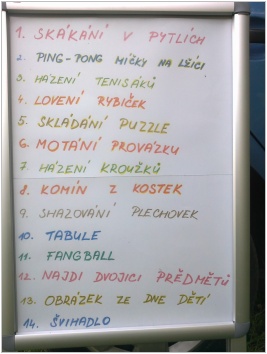 1. SKÁKÁNÍ V PYTLÍCH
2. PING-PONG MÍČKY NA LŽÍCI
3. HÁZENÍ TENISÁKŮ
4. LOVENÍ RYBIČEK
5. SKLÁDÁNÍ PUZZLE
6. MOTÁNÍ PROVÁZKU
7. HÁZENÍ KROUŽKŮ
8. KOMÍN Z KOSTEK
9. SHAZOVÁNÍ PLECHOVEK
10. TABULE
11. FANGBALL
12. NAJDI DVOJICI PŘEDMĚTŮ
13. OBRÁZEK ZE DNE DĚTÍ
14. ŠVIHADLO